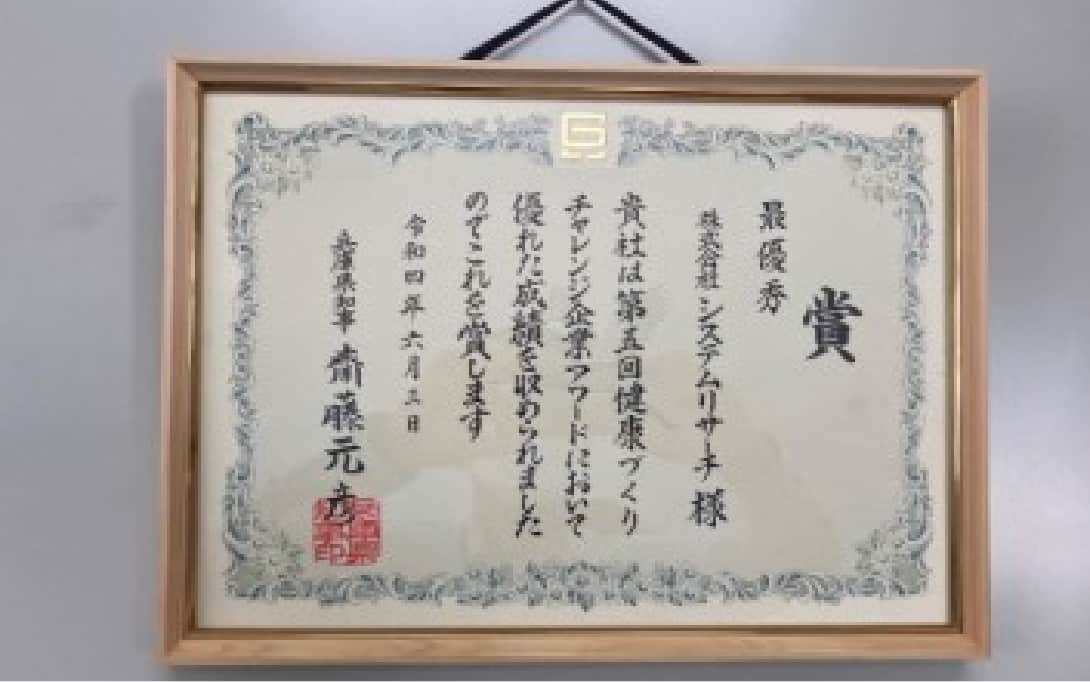 賞
最優秀
株式会社 システムリサーチ 様
貴社は第五回健康づくり
チャレンジ企業アワードにおいて
優れた成績を収められました
のでこれを賞します
令和四年六月三日
兵庫県知事 齋藤元彦